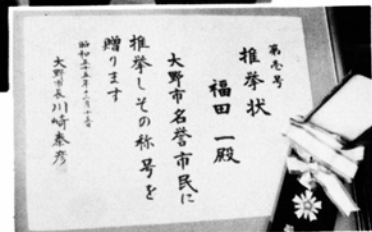 第壱号
推挙状
福田一殿
大野市名誉市民に
推挙しその称号を
贈ります
昭和五十五年十二月十五日
大野市長川崎泰彦